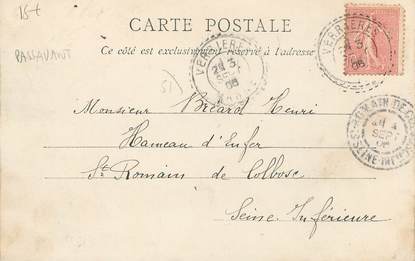 15€
PASSAVANT
CARTE POSTALE
Ce côté est exclusivement réservé à l'adresse
VERRIERES
3
SEPT
06
MARNE
VERRIERES
3
06
51
ST ROMAIN DE CO
4
SEPT
06
SEINE-INFRE
Monsieur Bréard Henri
Hameau d'Enfer
St Romain de Colbosc
Seine Inférieure